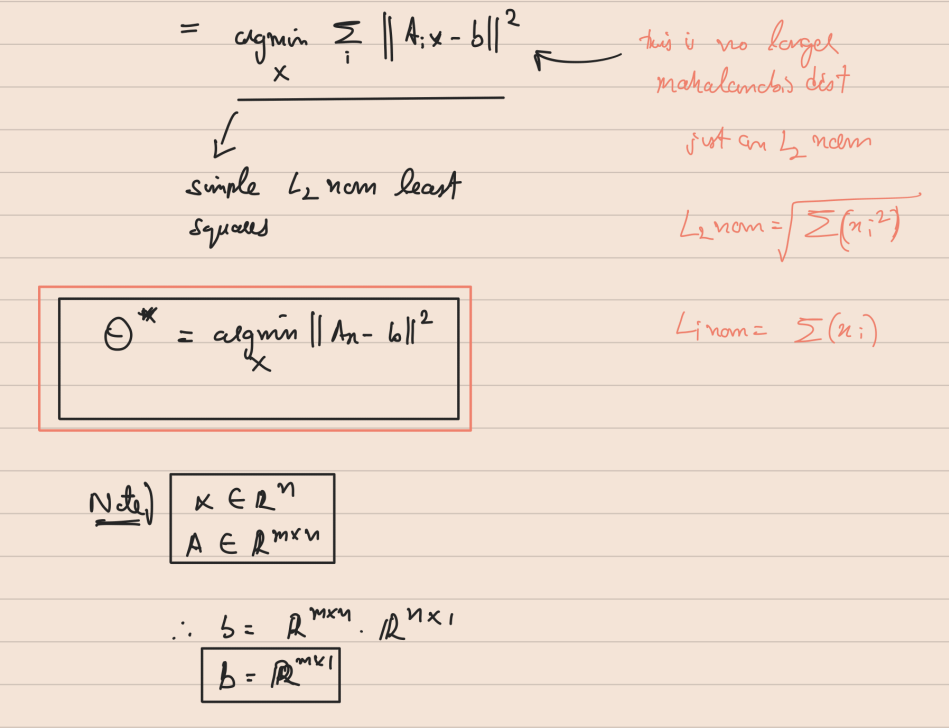 = argmin Σ ‖Aᵢx - b‖²
i
x
this is no larger
mahalanobis dist
just an L₂ norm
simple L₂ norm least
squares
L₂ norm = √Σ(xᵢ²)
Θ* = argmin ‖Ax - b‖²
x
L₁ norm = Σ(xᵢ)
Note)
x ∈ ℝⁿ
A ∈ ℝᵐˣⁿ
∴ b = ℝᵐˣⁿ · ℝⁿˣ¹
b = ℝᵐˣ¹